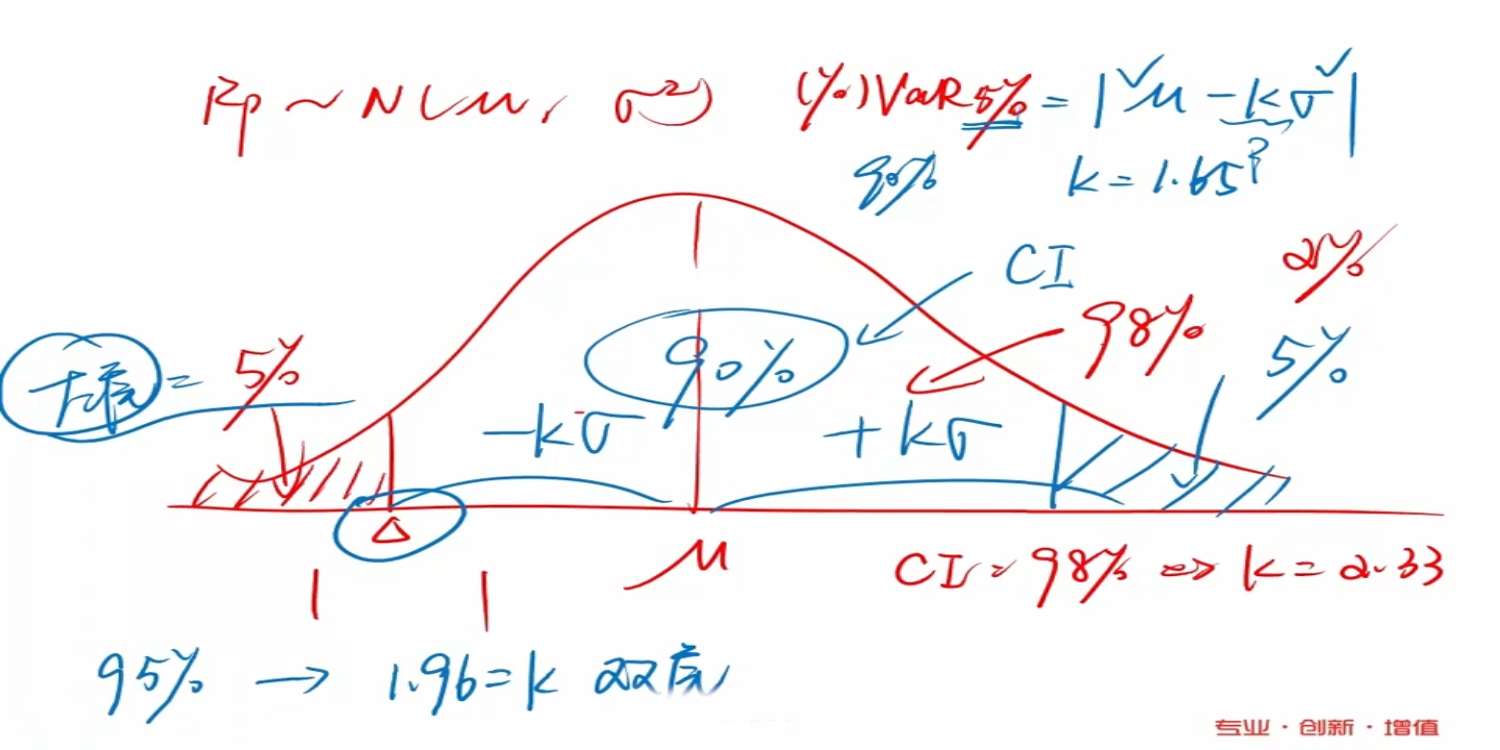 Rp ~ N(μ, σ²) (%)VaR5% = |μ - kσ|
90% k = 1.65
CI
2%
98%
5%
90%
= 5%
-kσ +kσ
Δ
μ
CI = 98% ⇔ k = 2.33
95% → 1.96 = k 双尾
专业·创新·增值